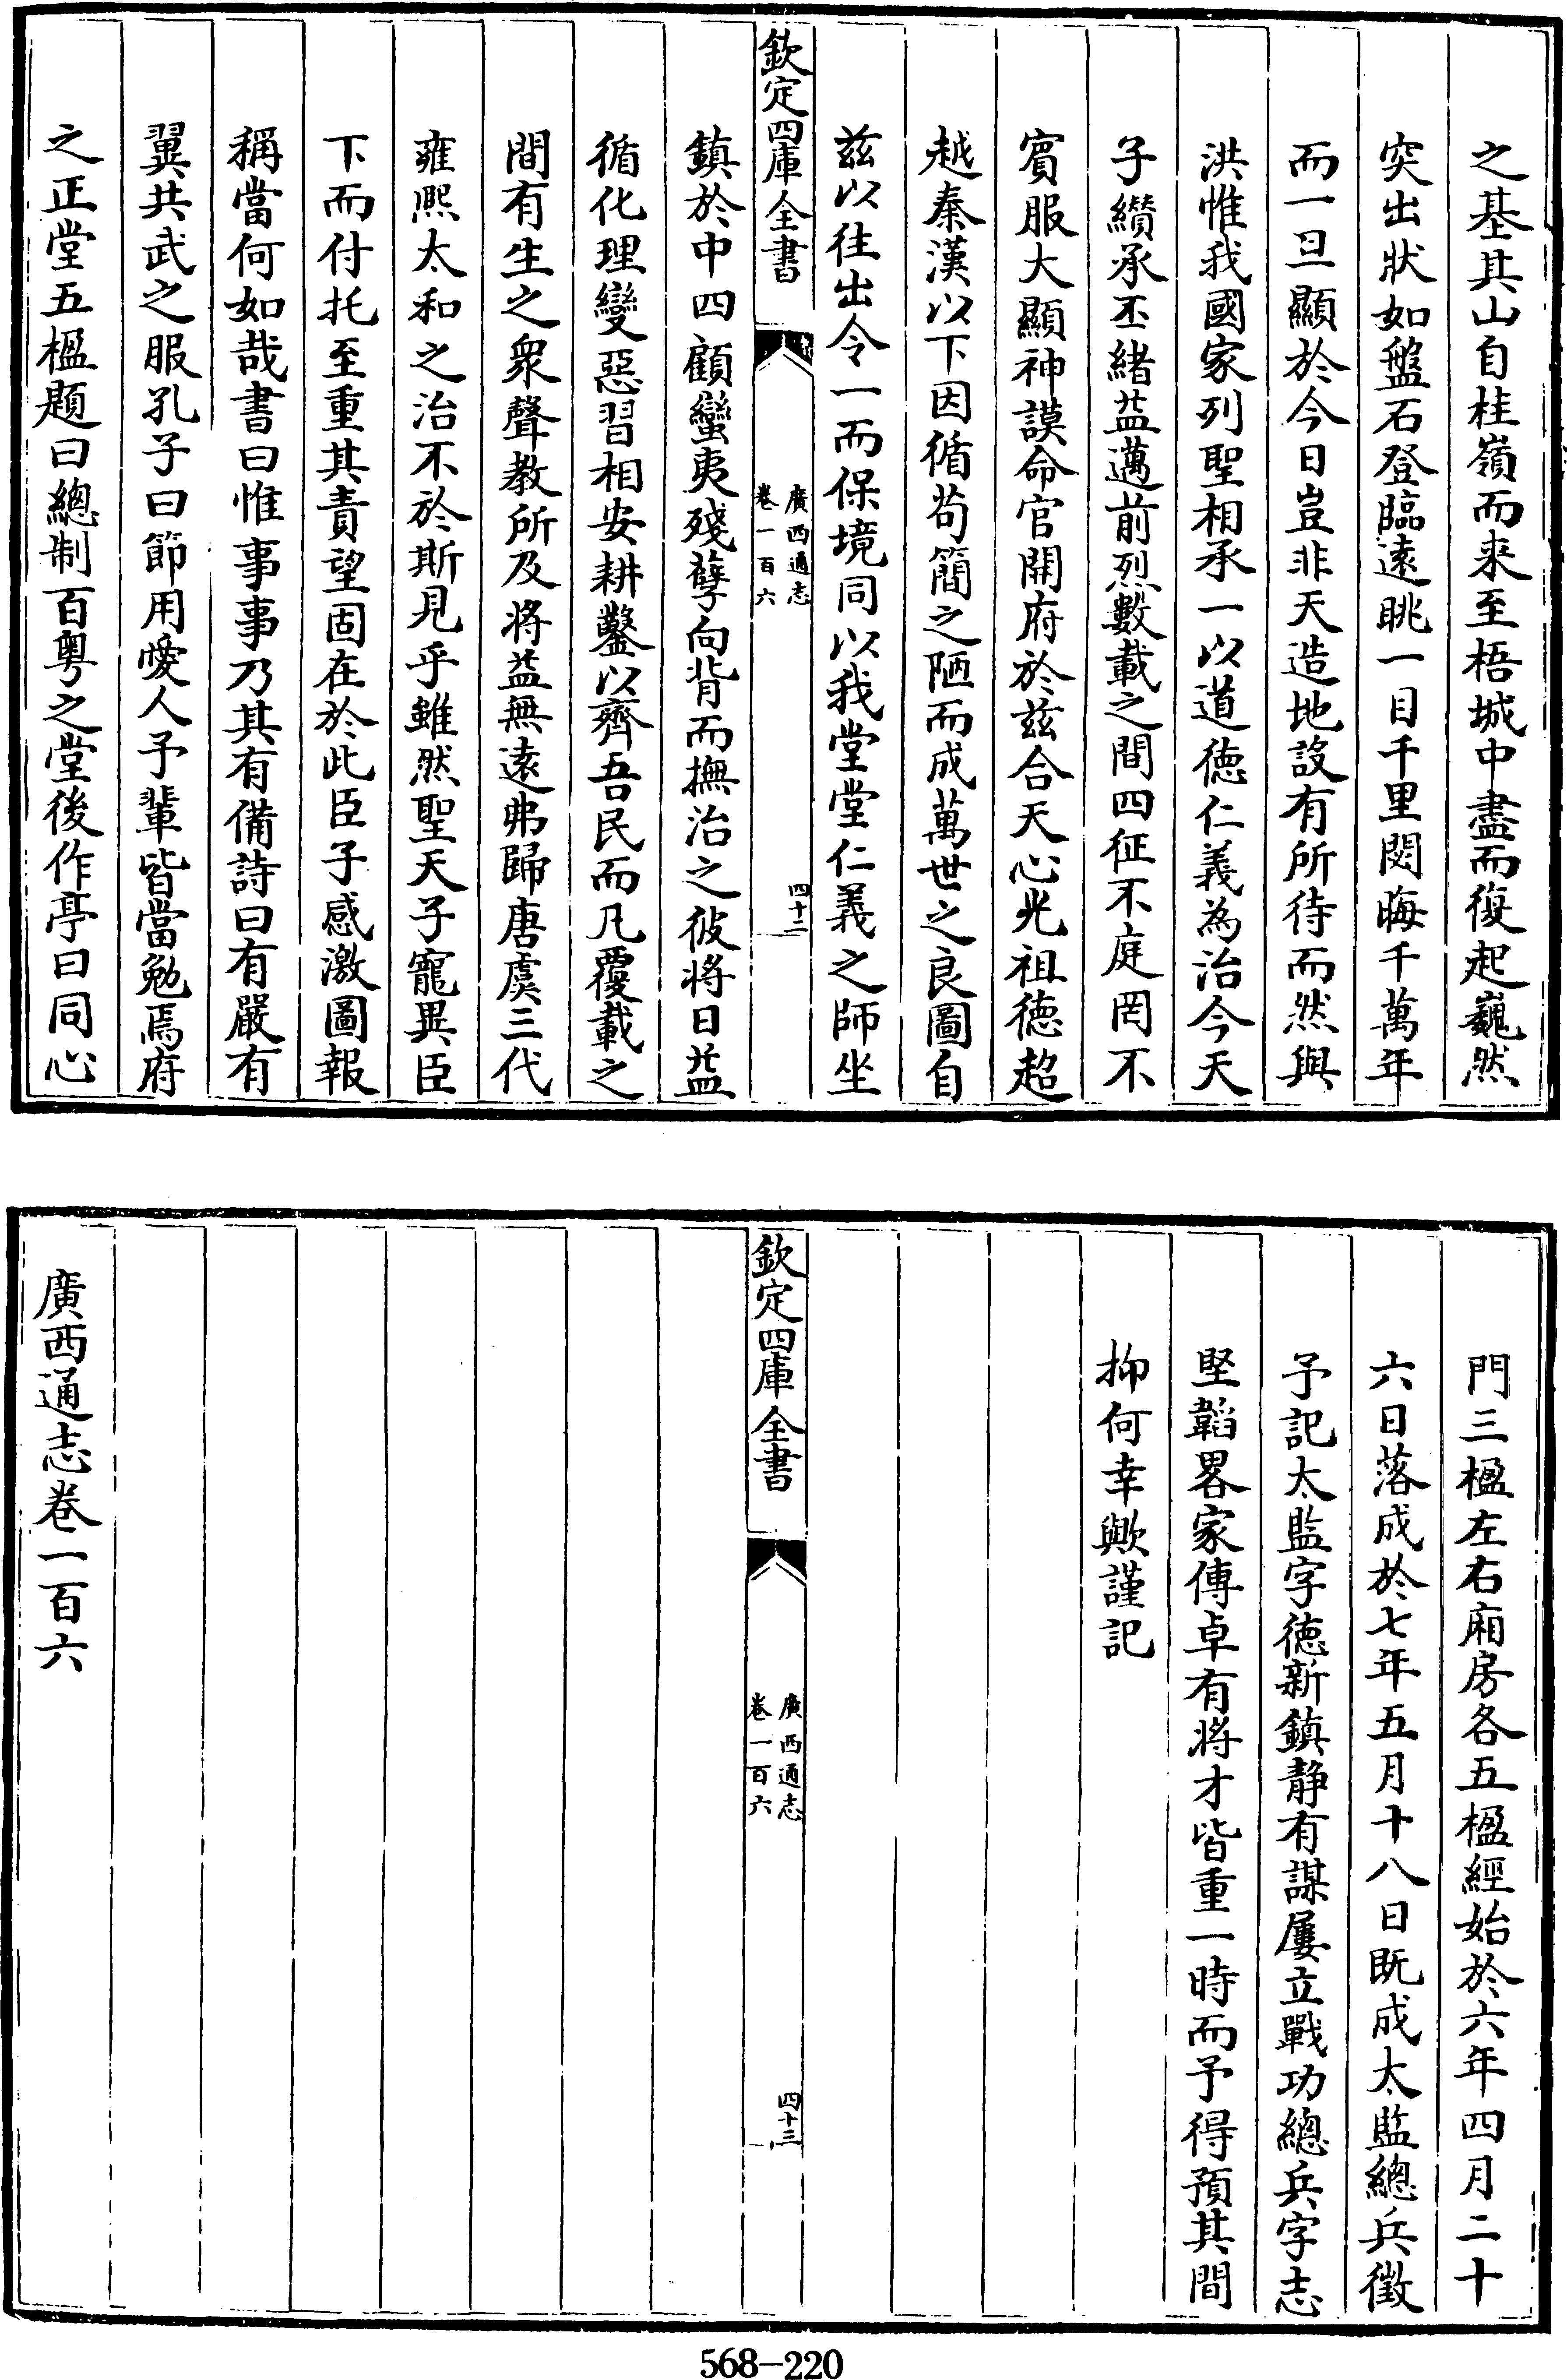 之基其山自桂嶺而来至梧城中盡而復起巍然
突出狀如盤石登臨遠眺一目千里閟晦千萬年
而一旦顯於今日豈非天造地設有所待而然與
洪惟我國家列聖相承一以道徳仁義為治今天
子纉承丕緒益邁前烈數載之間四征不庭罔不
賓服大顯神謨命官開府於兹合天心光祖徳超
越秦漢以下因循苟簡之陋而成萬世之良圖自
兹以往出令一而保境同以我堂堂仁義之師坐
欽定四庫全書
廣西通志
卷一百六
四十二
鎮於中四顧蠻夷殘孽向背而撫治之彼將日益
循化理變惡習相安耕鑿以齊吾民而凡覆載之
間有生之衆聲教所及將益無遠弗歸唐虞三代
雍熙太和之治不於斯見乎雖然聖天子寵異臣
下而付托至重其責望固在於此臣子感激圖報
稱當何如哉書曰惟事事乃其有備詩曰有嚴有
翼共武之服孔子曰節用愛人予輩皆當勉焉府
之正堂五楹題曰總制百粤之堂後作亭曰同心
門三楹左右廂房各五楹經始於六年四月二十
六日落成於七年五月十八日既成太監總兵徵
予記太監字徳新鎮静有謀屢立戰功總兵字志
堅韜畧家傳卓有將才皆重一時而予得預其間
抑何幸歟謹記
欽定四庫全書
廣西通志
卷一百六
四十三
廣西通志卷一百六
568-220